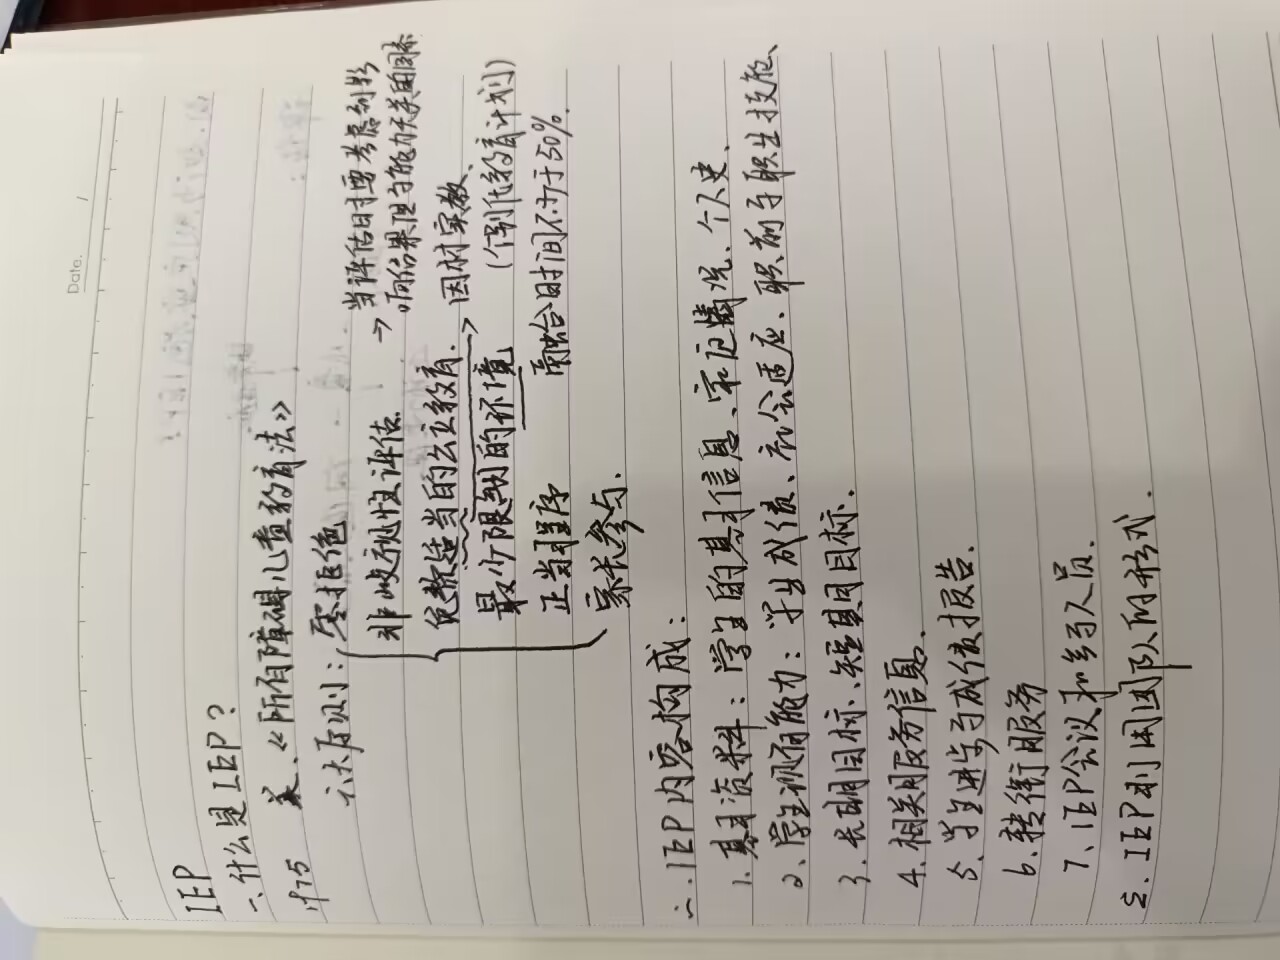 Date. /
IEP
一、什么是IEP?
美、《所有障碍儿童教育法》
1975
六大原则:零拒绝
非歧视性评估 → 当评估时要考虑到影
响结果但与能力无关的因素
免费适当的公立教育. → 因材实教、
最少限制的环境 (个别化教育计划)
正当程序 融合时间不少于50%.
家长参与.
二. IEP内容构成:
1. 基本资料:学生的基本信息、家庭情况、个人史、
2、学生现有能力:学业成绩、社会适应、职前与职业技能、
3. 长期目标、短期目标.
4. 相关服务信息.
5. 学生进步与成绩报告.
6. 转衔服务
7、IEP会议和参与人员.
三. IEP利用团队的形式.